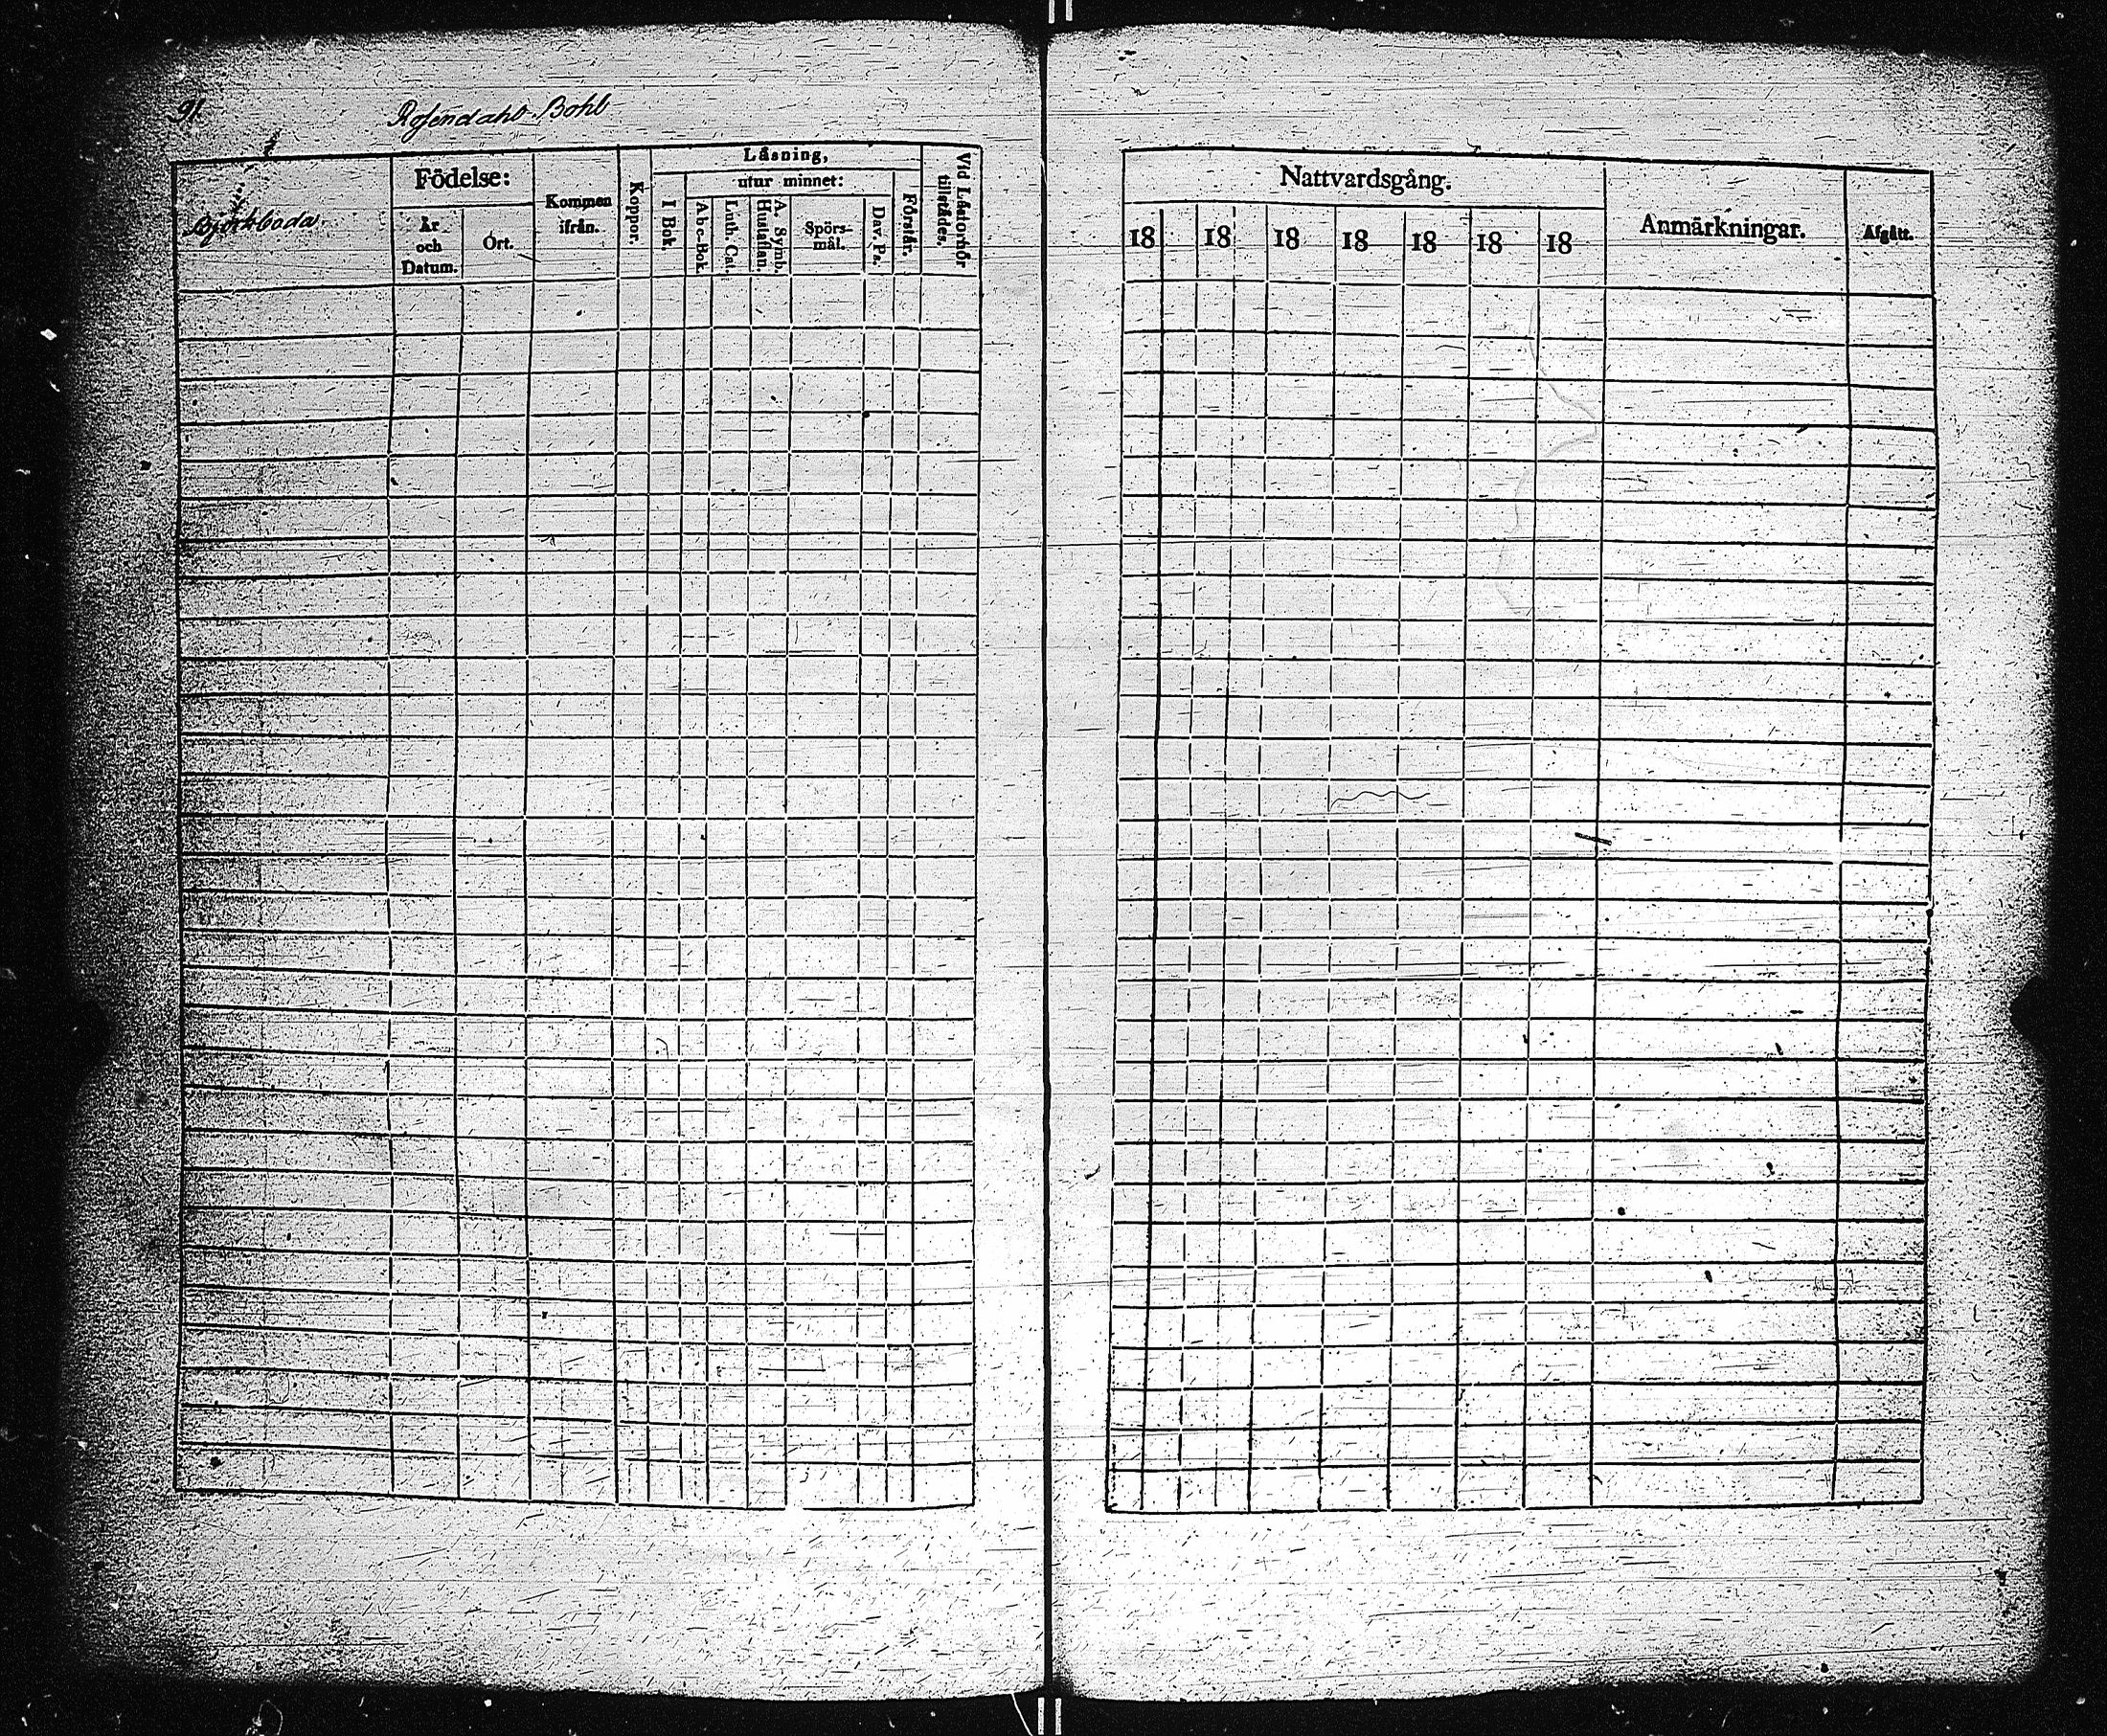 91.
Rosendahls Bohl
Björkboda.
Födelse:
År
och
Datum.
Ort.
Kommen
ifrån.
Koppor.
Läsning,
utur minnet:
I Bok.
Abc-Bok.
Luth. Cat.
A. Symb.
Hustaflan.
Spörs-
mål.
Dav. Ps.
Förstår.
Vid Läseförhör
tillstädes.
Nattvardsgång.
18 18 18 18 18 18 18
Anmärkningar.
Afgått.